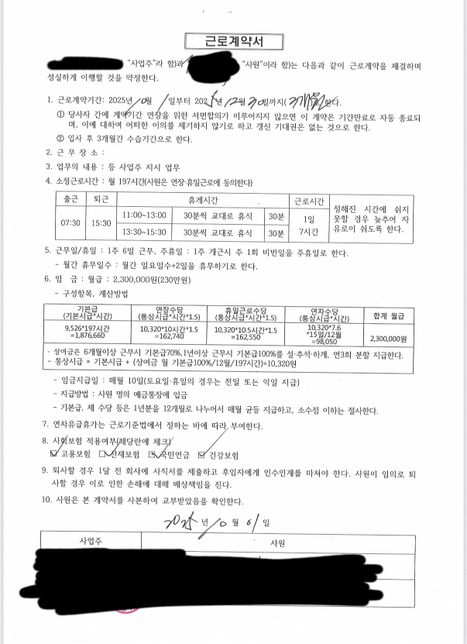 근로계약서
"사업주"라 함)과 "사원"이라 함)는 다음과 같이 근로계약을 체결하며
성실하게 이행할 것을 약정한다.
1. 근로계약기간: 2025년 10월 1일부터 2025년 12월 30일까지(3개월)한다.
① 당사자 간에 계약기간 연장을 위한 서면합의가 이루어지지 않으면 이 계약은 기간만료로 자동 종료되
며, 이에 대하여 어떠한 이의를 제기하지 않기로 하고 갱신 기대권은 없는 것으로 한다.
② 입사 후 3개월간 수습기간으로 한다.
2. 근 무 장 소 :
3. 업무의 내용 : 등 사업주 지시 업무
4. 소정근로시간 : 월 197시간(사원은 연장·휴일근로에 동의한다)
출근 퇴근 휴게시간 근로시간 정해진 시간에 쉬지
못할 경우 늦추어 자
유로이 쉬도록 한다.
07:30 15:30 11:00~13:00 30분씩 교대로 휴식 30분 1일
7시간
13:30~15:30 30분씩 교대로 휴식 30분
5. 근무일/휴일 : 1주 6일 근무, 주휴일 : 1주 개근시 주 1회 비번일을 주휴일로 한다.
- 월간 휴무일수 : 월간 일요일수+2일을 휴무하기로 한다.
6. 임 금 : 월 2,300,000원(230만원)
- 구성항목, 계산방법
기본급
(기본시급*시간) 연장수당
(통상시급*시간*1.5) 휴일근로수당
(통상시급*시간*1.5) 연차수당
(통상시급*시간) 합계 월급
9,526*197시간
=1,876,660 10,320*10시간*1.5
=162,740 10,320*10.5시간*1.5
=162,550 10,320*7.6
*15일/12월
=98,050 2,300,000원
- 상여금은 6개월이상 근무시 기본급70%,1년이상 근무시 기본급100%를 설·추석·하계, 연3회 분할 지급한다.
- 통상시급 = 기본시급 + (상여금 월 기본급100%/12월/197시간)=10,320원
- 임금지급일 : 매월 10일(토요일·휴일의 경우는 전일 또는 익일 지급)
- 지급방법 : 사원 명의 예금통장에 입금
- 기본급, 제 수당 등은 1년분을 12개월로 나누어서 매월 균등 지급하고, 소수점 이하는 정사한다.
7. 연차유급휴가는 근로기준법에서 정하는 바에 따라 부여한다.
8. 사회보험 적용여부(해당란에 체크)
고용보험 산재보험 국민연금 건강보험
9. 퇴사할 경우 1달 전 회사에 사직서를 제출하고 후임자에게 인수인계를 마쳐야 한다. 사원이 임의로 퇴
사할 경우 이로 인한 손해에 대해 배상책임을 진다.
10. 사원은 본 계약서를 사본하여 교부받았음을 확인한다.
2025년 10월 01일
사업주 사원